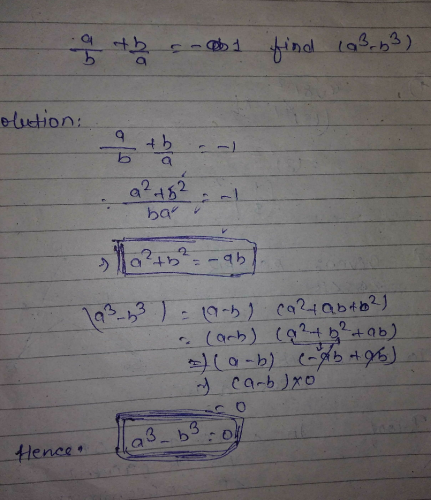 a/b + b/a = -1 find (a³-b³)
olution:
a/b + b/a = -1
= a²+b²/ba = -1
⇒ a²+b² = -ab
(a³-b³) = (a-b) (a²+ab+b²)
= (a-b) (a²+b²+ab)
⇒ (a-b) (-ab+ab)
⇒ (a-b)×0
= 0
Hence. a³-b³=0